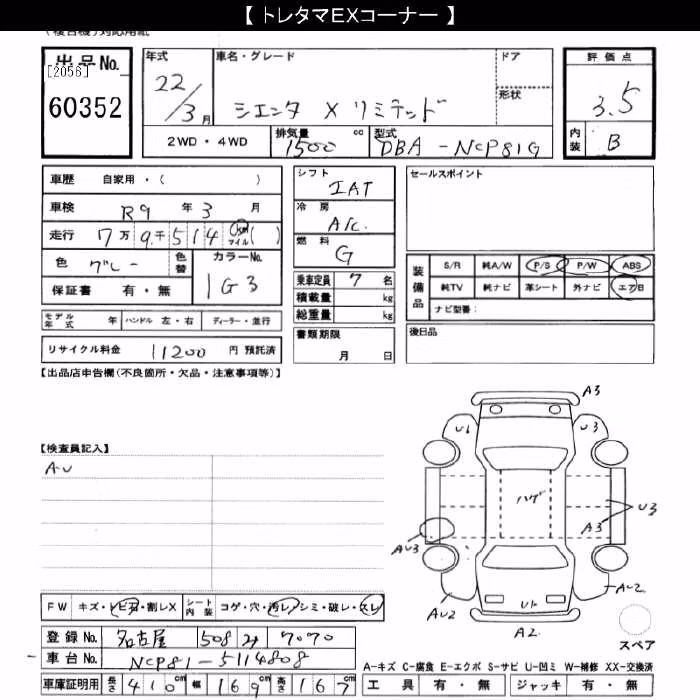 【 トレタマEXコーナー 】
(複合機)対応用紙
出品No.
[2056]
60352
年式
22/3月
車名・グレード
シエンタ X リミテッド
ドア
形状
評価点
3.5
内装 B
2WD・4WD
排気量 1500 cc
型式 DBA-NCP81G
車歴 自家用・( )
車検 R9年3月
走行 7万9千514 km マイル( )
色 グレー 色替
カラーNo. 1G3
保証書 有・無
モデル年式 年 ハンドル 左・右 ディーラー・並行
リサイクル料金 11200 円 預託済
シフト IAT
冷房 A/C.
燃料 G
乗車定員 7 名
積載量 kg
総重量 kg
書類期限
月 日
セールスポイント
装備品
S/R 純A/W P/S P/W ABS
純TV 純ナビ 革シート 外ナビ エアB
ナビ型番:
後日品
【出品店申告欄(不良箇所・欠品・注意事項等)】
【検査員記入】
AU
A3
U1 U3
ハゲ
U3
A3
AU3
AU2 AU2
A2
スペア
FW キズ・トビ石・割レX シート内装 コゲ・穴・汚レ・シミ・破レ・スレ
登録No. 名古屋 508 7070
車台No. NCP81-5114808
車庫証明用 長さ 410cm 幅 169cm 高さ 167cm
A-キズ C-腐食 E-エクボ S-サビ U-凹ミ W-補修 XX-交換済
工具 有・無 ジャッキ 有・無